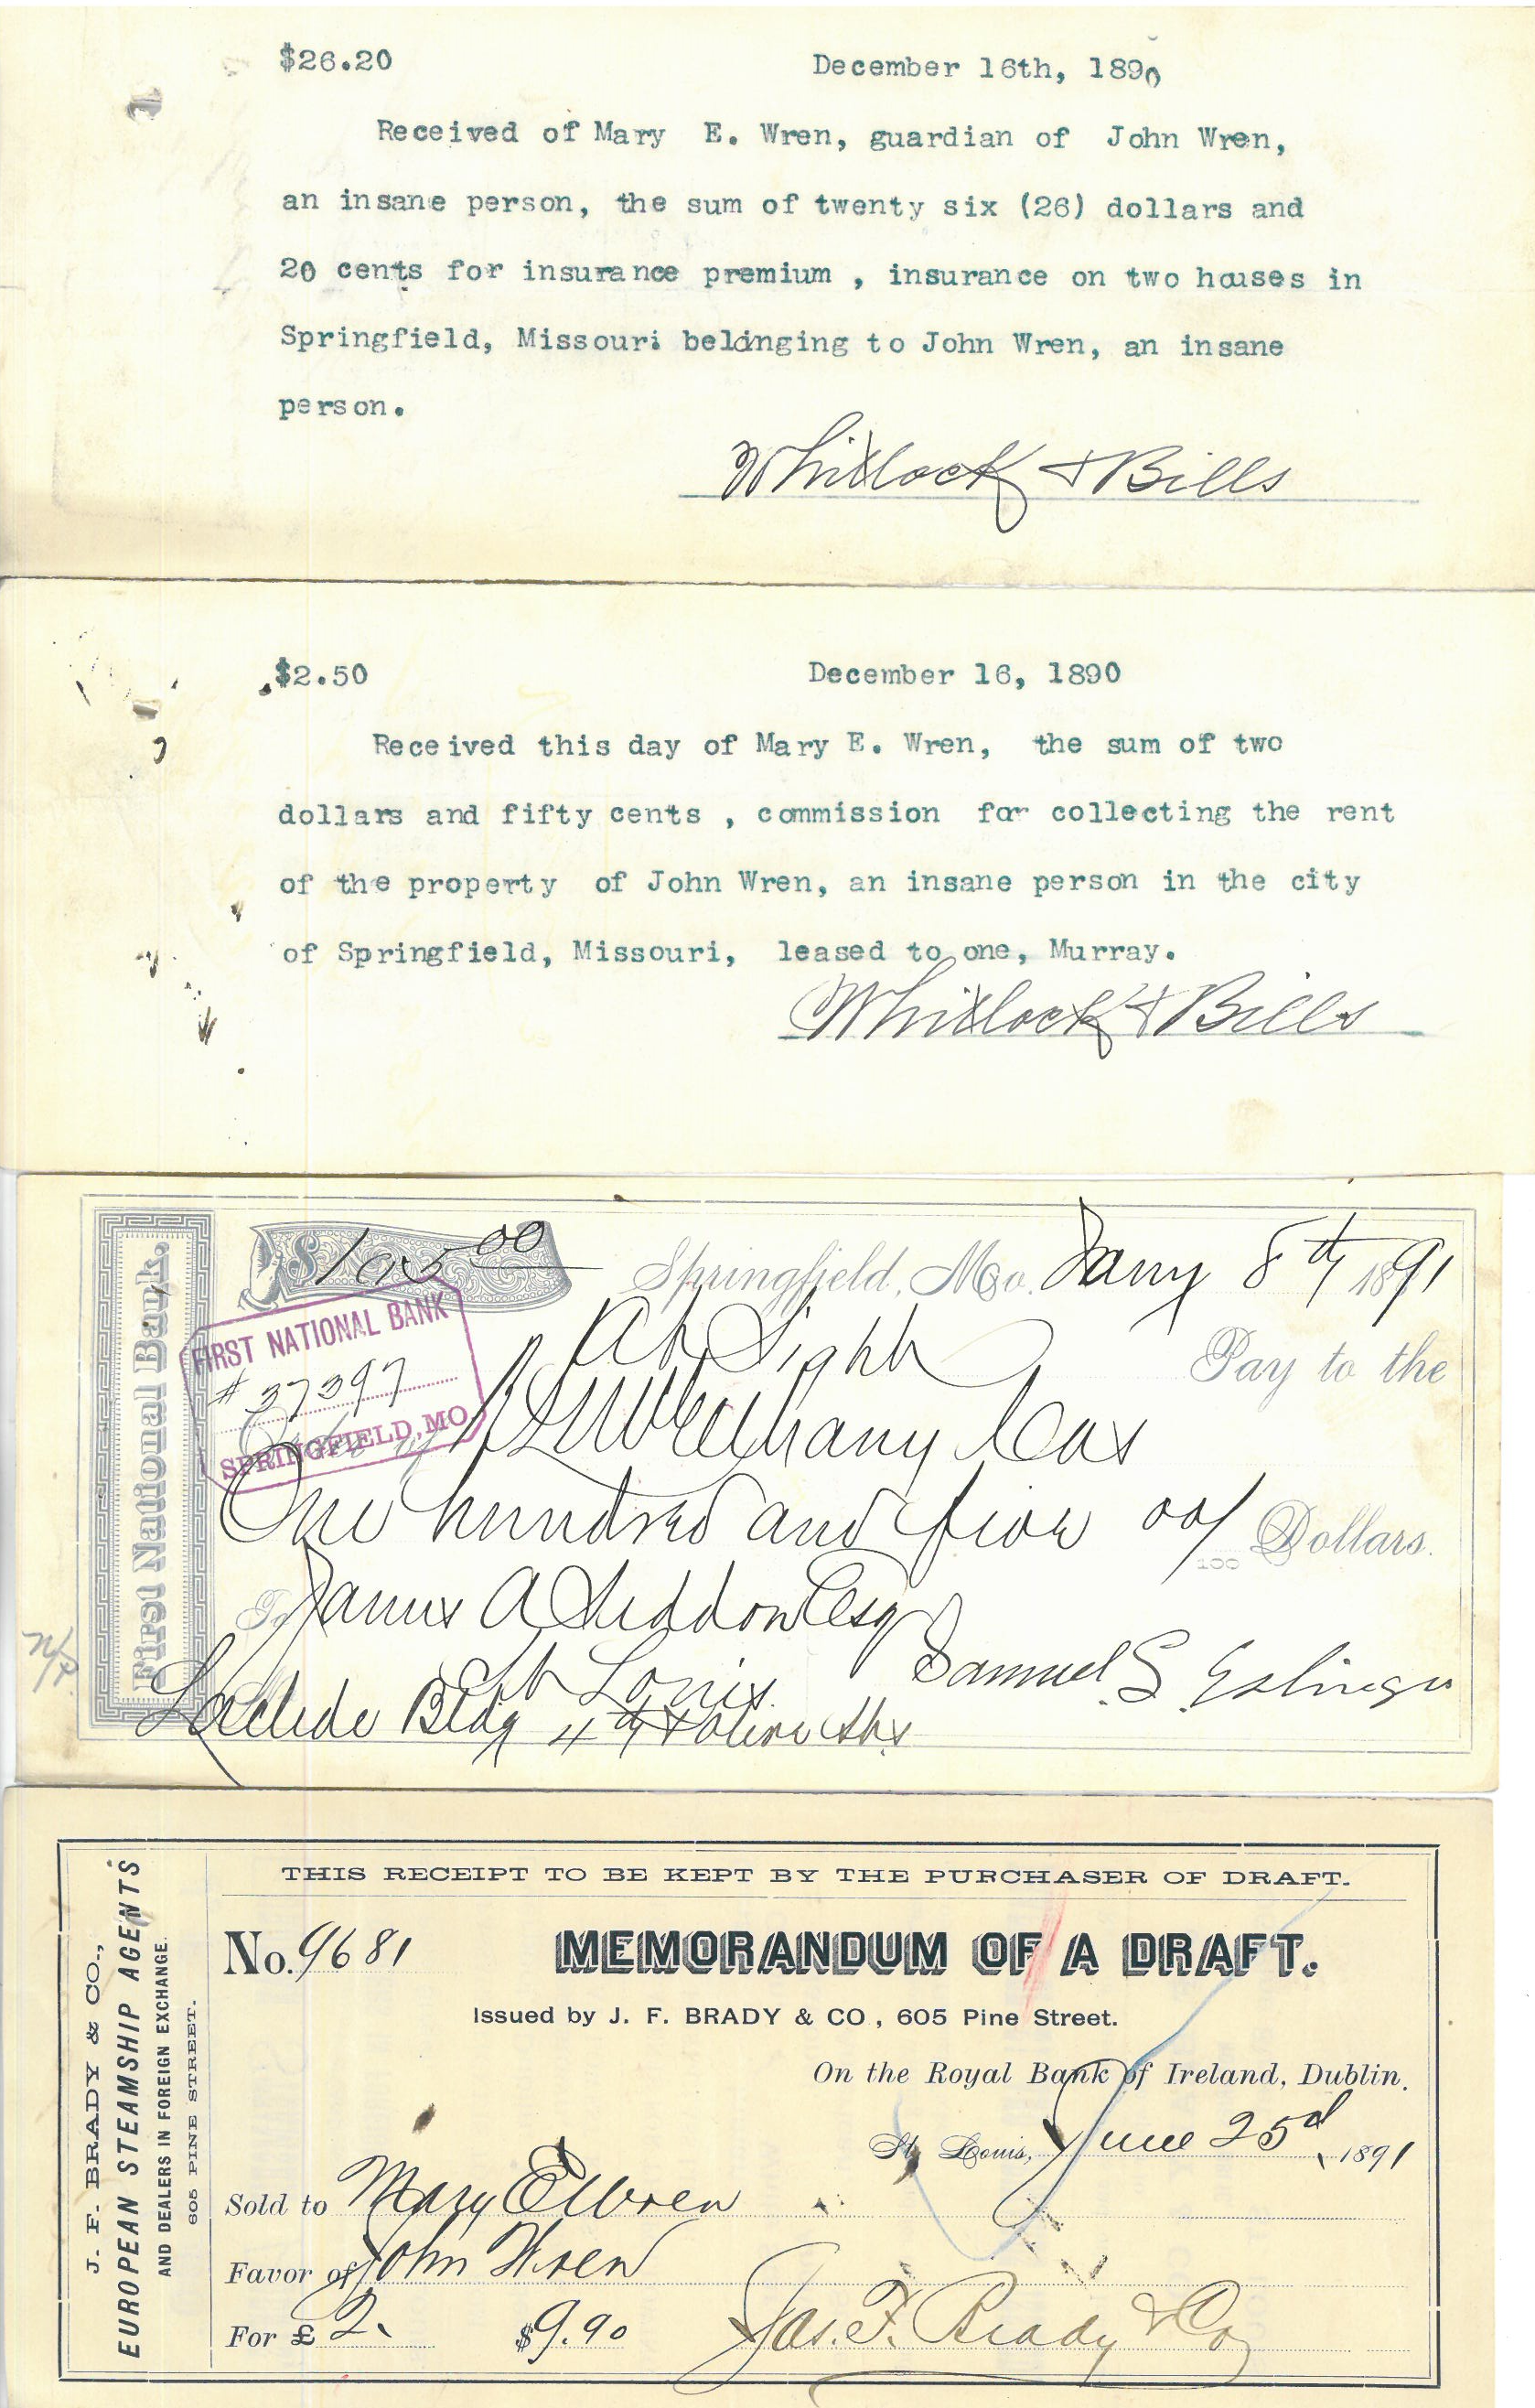 $26.20 December 16th, 1890
Received of Mary E. Wren, guardian of John Wren,
an insane person, the sum of twenty six (26) dollars and
20 cents for insurance premium , insurance on two houses in
Springfield, Missouri belonging to John Wren, an insane
person.
Whitlock & Bills
$2.50 December 16, 1890
Received this day of Mary E. Wren, the sum of two
dollars and fifty cents , commission for collecting the rent
of the property of John Wren, an insane person in the city
of Springfield, Missouri, leased to one, Murray.
Whitlock & Bills
First National Bank.
$105 00 Springfield, Mo. Jany 8th 1891
FIRST NATIONAL BANK
# 37397
SPRINGFIELD, MO
At Sight Pay to the
Order of Cas
One hundred and five 00/100 Dollars.
To James A Seddon Esq
St Louis. Samuel S. Eslinger
Laclede Bldg 4th & Olive Sts
J. F. BRADY & CO.,
EUROPEAN STEAMSHIP AGENTS
AND DEALERS IN FOREIGN EXCHANGE.
605 PINE STREET.
THIS RECEIPT TO BE KEPT BY THE PURCHASER OF DRAFT.
No. 9681 MEMORANDUM OF A DRAFT.
Issued by J. F. BRADY & CO., 605 Pine Street.
On the Royal Bank of Ireland, Dublin.
St. Louis, June 25d 1891
Sold to Mary E Wren
Favor of John Wren
For £ 2. $9.90 Jas. F. Brady & Co